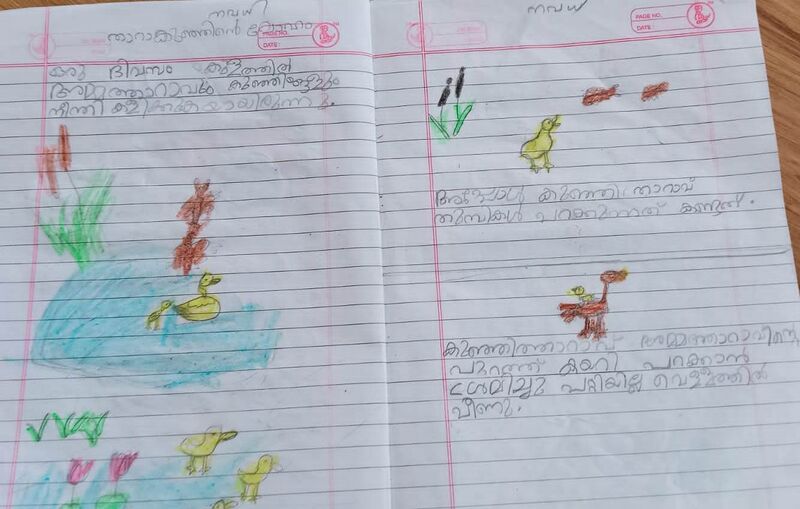 നവമി
താറാകുഞ്ഞിന്റെ മോഹം
PAGE NO.
DATE:
ഒരു ദിവസം കുളത്തിൽ
അമ്മത്താറാവും കുഞ്ഞുങ്ങളും
നീന്തി കളിക്കുകയായിരുന്നു.
നവമി
PAGE NO.
DATE:
അപ്പോൾ കുഞ്ഞിത്താറാവ്
തുമ്പികൾ പറക്കുന്നത് കണ്ടത്.
കുഞ്ഞിത്താറാവ് അമ്മത്താറാവിന്റെ
പുറത്ത് കയറി പറക്കാൻ
ശ്രമിച്ചു പറ്റിയില്ല വെള്ളത്തിൽ
വീണു.